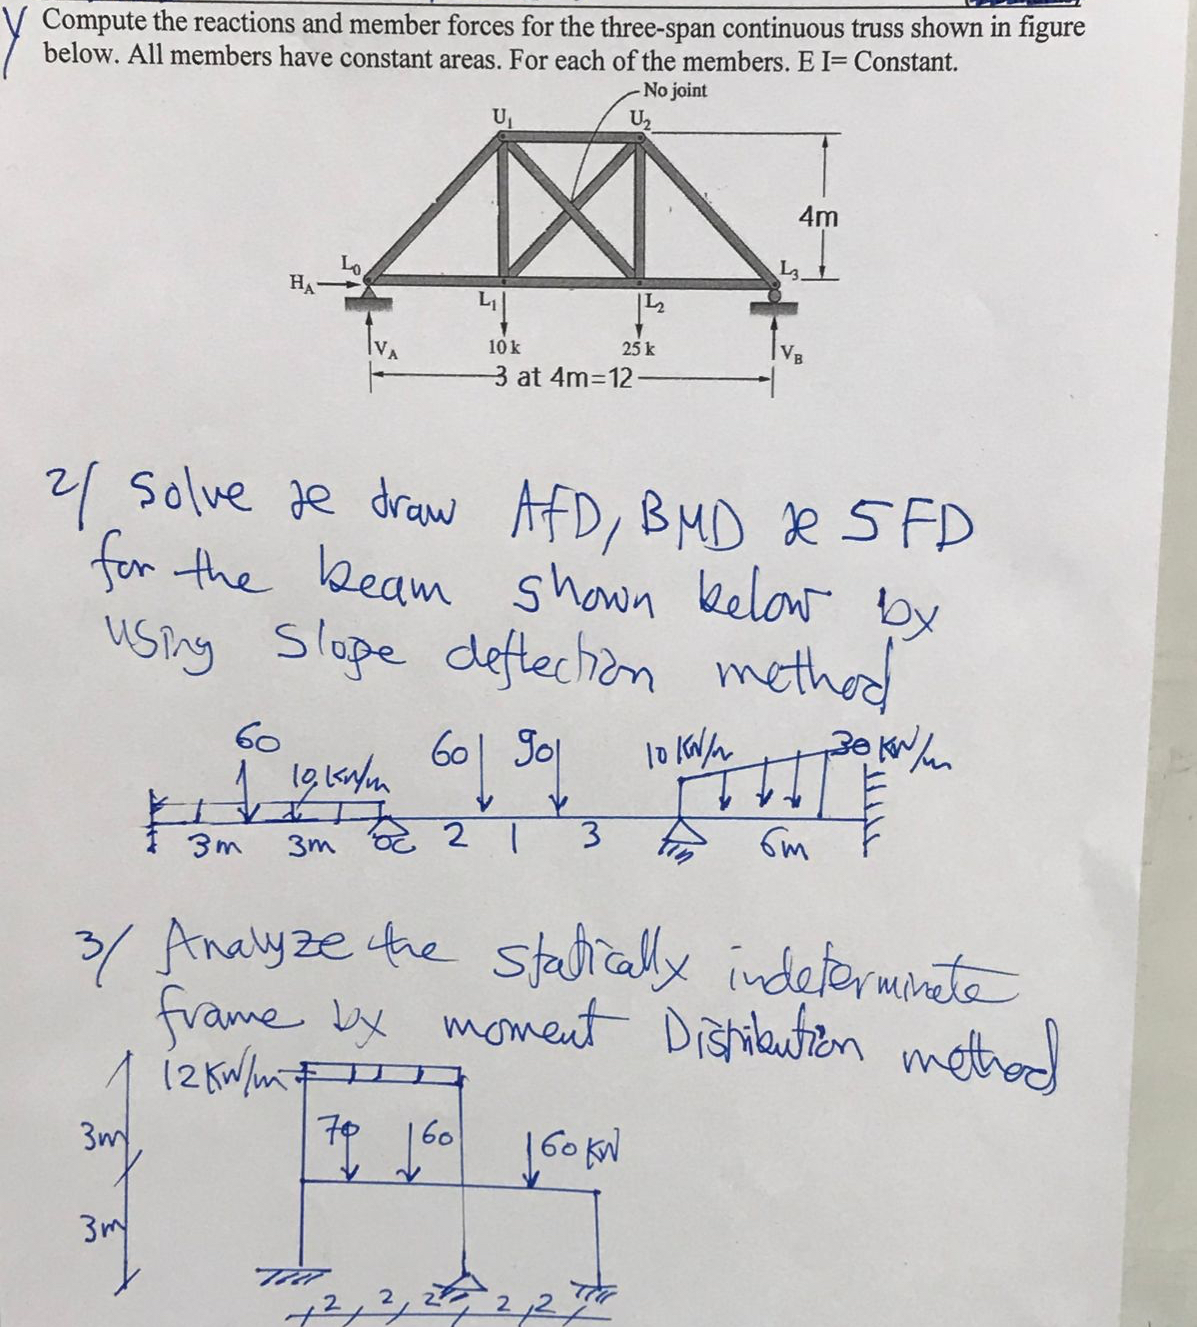 Y Compute the reactions and member forces for the three-span continuous truss shown in figure
below. All members have constant areas. For each of the members. E I= Constant.
No joint
U₁ U₂
4m
L₀ L₃
Hᴀ
L₁ L₂
Vᴀ 10 k 25 k Vʙ
3 at 4m=12
2/ Solve & draw AFD, BMD & SFD
for the beam shown below by
using slope deflection method
60 60 90 10 KN/m 30 KN/m
10 KN/m
3m 3m 2 1 3 6m
3/ Analyze the statically indeterminate
frame by moment Distribution method
12 KN/m
3m 70 60 60 KN
3m
2, 2, 2, 2, 2